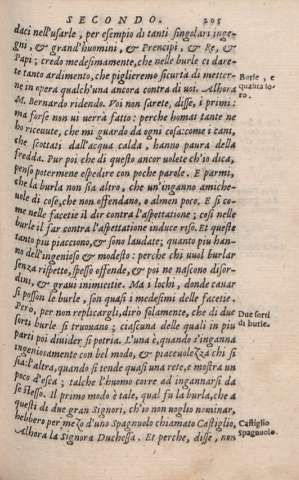 SECONDO. 295
daci nell'usarle, per esempio di tanti singolari inge-
gni, & grand'huomini, & Prencipi, & Re, &
Papi; credo medesimamente, che nelle burle ci dare-
te tanto ardimento, che piglieremo sicurtà di metter-
Burle, e
ne in opera qualch'una ancora contra di voi. Alhora
qualita lo-
ro.
M. Bernardo ridendo. Voi non sarete, disse, i primi:
ma forse non vi uerrà fatto: perche homai tante ne
ho riceuute, che mi guardo da ogni cosa: come i cani,
che scottati dall'acqua calda, hanno paura della
fredda. Pur poi che di questo ancor uolete ch'io dica,
penso potermene espedire con poche parole. E parmi,
che la burla non sia altro, che un'inganno amiche-
uole di cose, che non offendano, o almen poco. E si co-
me nelle facetie il dir contra l'aspettatione; cosi nelle
burle il far contra l'aspettatione induce riso. Et queste
tanto piu piacciono, & sono laudate; quanto piu han-
no dell'ingenioso & modesto: perche chi uuol burlar
senza rispetto, spesso offende, & poi ne nascono disor-
dini, & graui inimicitie. Ma i lochi, donde cauar
si posson le burle, son quasi i medesimi delle facetie.
Però, per non replicargli, dirò solamente, che di due
Due sorti
di burle.
sorti burle si truouano; ciascuna delle quali in piu
parti poi diuider si potria. L'una è, quando s'inganna
ingeniosamente con bel modo, & piaceuolezza chi si
sia: l'altra, quando si tende quasi una rete, e mostra un
poco d'esca; talche l'huomo corre ad ingannarsi da
se stesso. Il primo modo è tale, qual fu la burla, che a
questi dì due gran Signori, ch'io non uoglio nominar,
hebbero per mezo d'uno Spagnuolo chiamato Castiglio,
Castiglio
Spagnuolo.
Alhora la Signora Duchessa. Et perche, disse, non